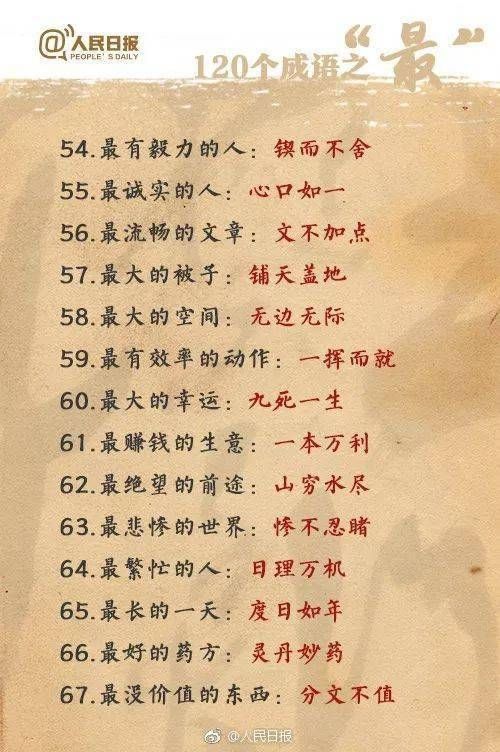 @人民日报
PEOPLE'S DAILY
120个成语之“最”
54.最有毅力的人：锲而不舍
55.最诚实的人：心口如一
56.最流畅的文章：文不加点
57.最大的被子：铺天盖地
58.最大的空间：无边无际
59.最有效率的动作：一挥而就
60.最大的幸运：九死一生
61.最赚钱的生意：一本万利
62.最绝望的前途：山穷水尽
63.最悲惨的世界：惨不忍睹
64.最繁忙的人：日理万机
65.最长的一天：度日如年
66.最好的药方：灵丹妙药
67.最没价值的东西：分文不值
@人民日报